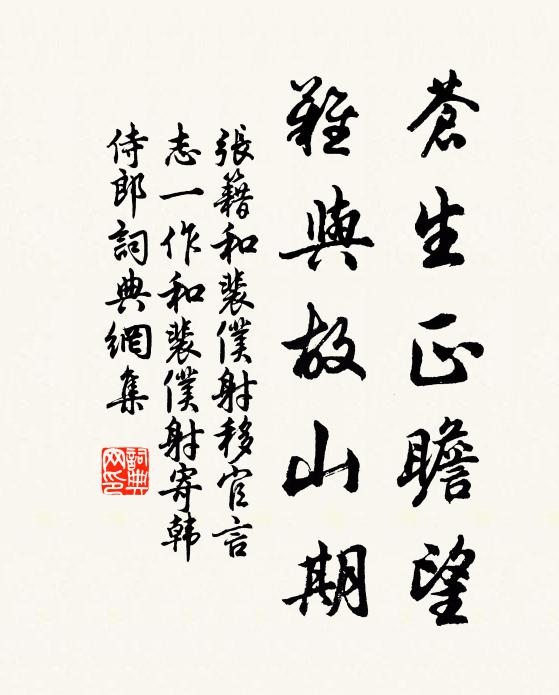 蒼生正瞻望
難與故山期
張籍和裴僕射移官言
志一作和裴僕射寄韩
侍郎詞典網集
詞典网印